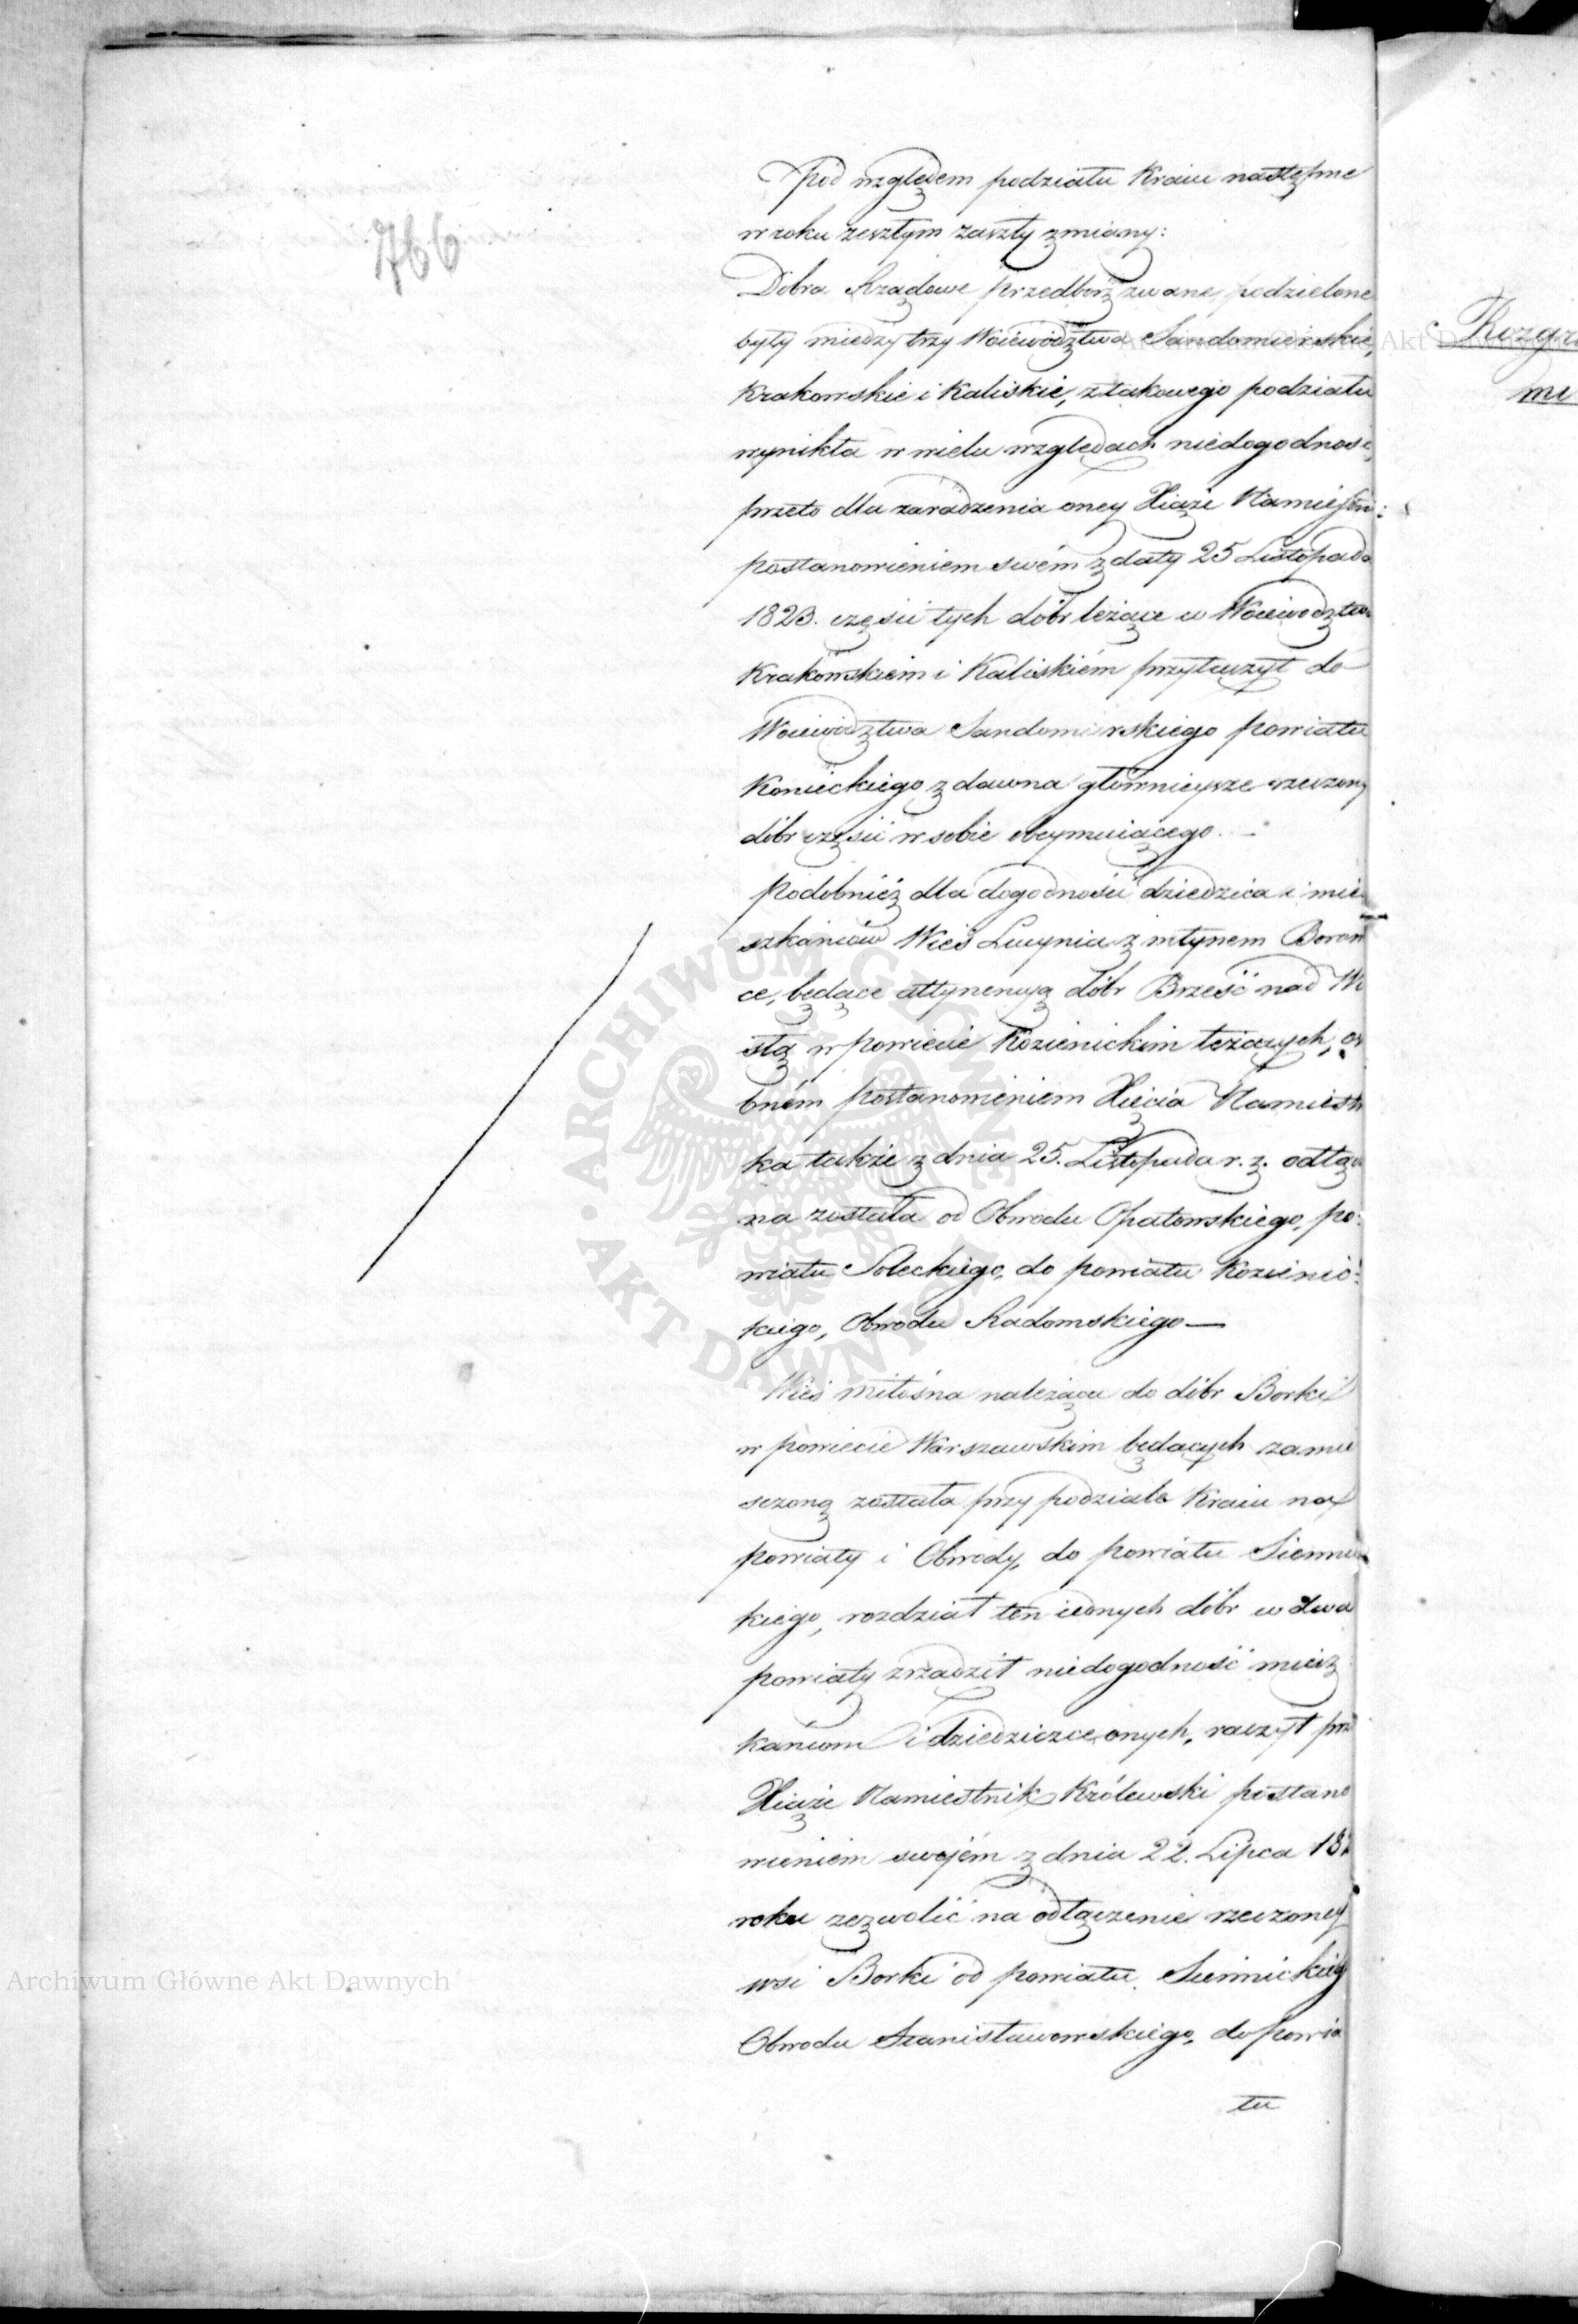 766
Pod względem podziału Kraiu następne
w roku zeszłym zaszły zmiany:
Dobra Rządowe Przedbórz zwane, podzielone
były między trzy Woiewództwa Sandomierskie,
Krakowskie i Kaliskie, z takowego podziału
wynikła w wielu względach niedogodność,
przeto dla zaradzenia oney Xiąże Namiestni:
postanowieniem swém z daty 25 Listopada
1823. części tych dóbr leżące w Woiewództw
Krakowskiem i Kaliskiém przyłączył do
Woiewództwa Sandomirskiego powiatu
Konieckiego z dawna głównieysze rzeczony
dóbr części w sobie obeymuiącego. —
Podobnież dla dogodności dziedzica i mie
szkańców Wieś Lucynia z młynem Boron
ce, będące attynencyą dóbr Brześć nad Wi
słą w powiecie Kozienickim leżących, os
bném postanowieniem Xięcia Namiestn
ka także z dnia 25. Listopada r. z. odłącz
na została od Obwodu Opatowskiego, po:
wiatu Soleckiego, do powiatu Kozienic:
kiego, Obwodu Radomskiego —
Wieś Miłosna należąca do dóbr Borki
w powiecie Warszawskim będących zamie
sczoną została przy podziale Kraiu na
powiaty i Obwody, do powiatu Siennic
kiego, rozdział ten iednych dóbr w dwa
powiaty zrządził niedogodność miesz
kańcom i dziedziczce onych, raczył prz
Xiąże Namiestnik Królewski postano
wieniem swojém z dnia 22. Lipca 182
roku zezwolić na odłączenie rzeczoney
wsi Borki od powiatu Siennickieg
Obwodu Stanisławowskiego, do powia
tu
Rozgra
mi
Archiwum Główne Akt Dawnych
Archiwum Główne Akt Dawnych
ARCHIWUM GŁÓWNE AKT DAWNYCH